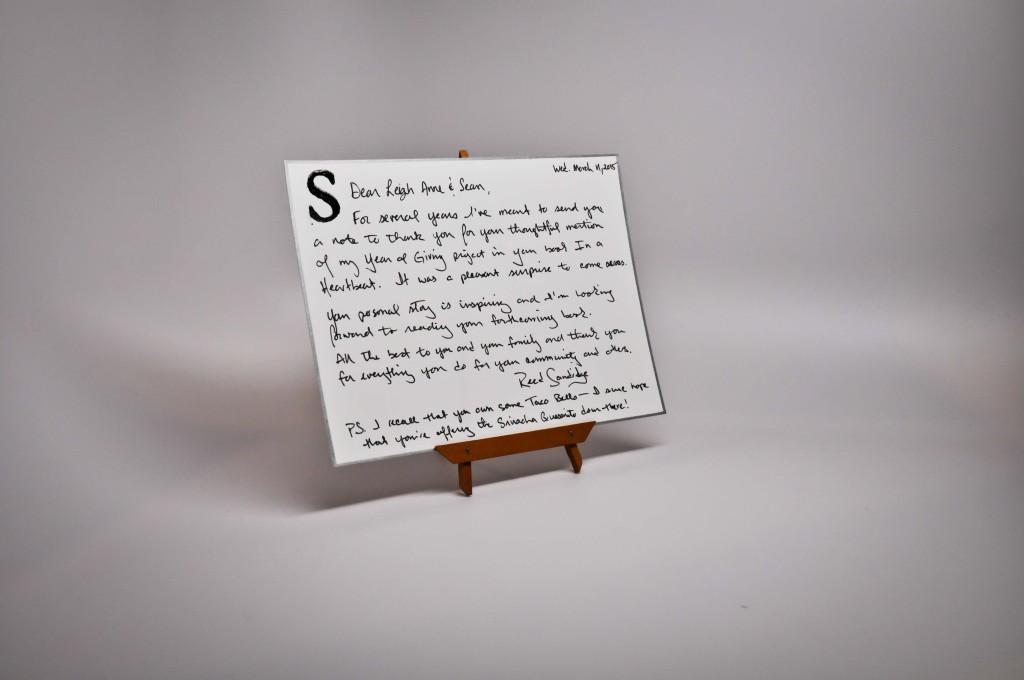 Wed. March 11, 2015
S
Dear Leigh Anne & Sean,
For several years I've meant to send you
a note to thank you for your thoughtful mention
of my Year of Giving project in your book In a
Heartbeat. It was a pleasant surprise to come across.
Your personal story is inspiring and I'm looking
forward to reading your forthcoming book.
All the best to you and your family and thank you
for everything you do for your community and others.
Reed Sandridge
PS. I recall that you own some Taco Bells — I sure hope
that you're offering the Sriracha Quesarito down there!